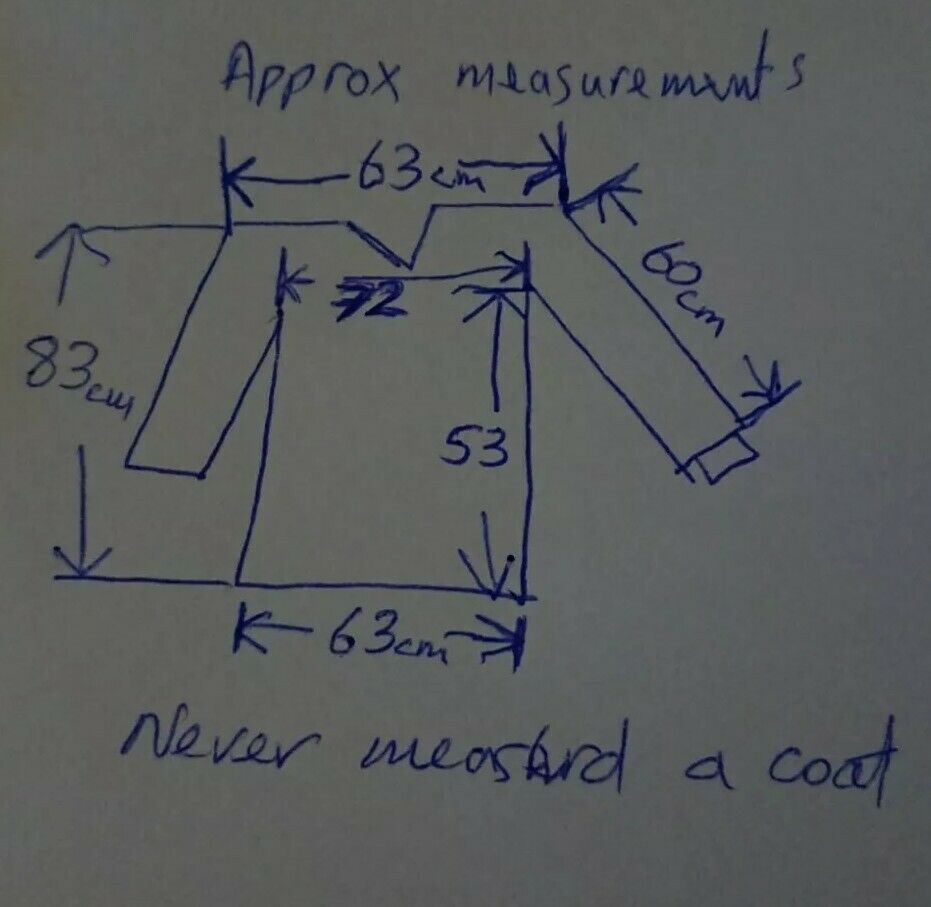 Approx measurements
63cm
60cm
72
83cm
53
63cm
Never measurd a coat